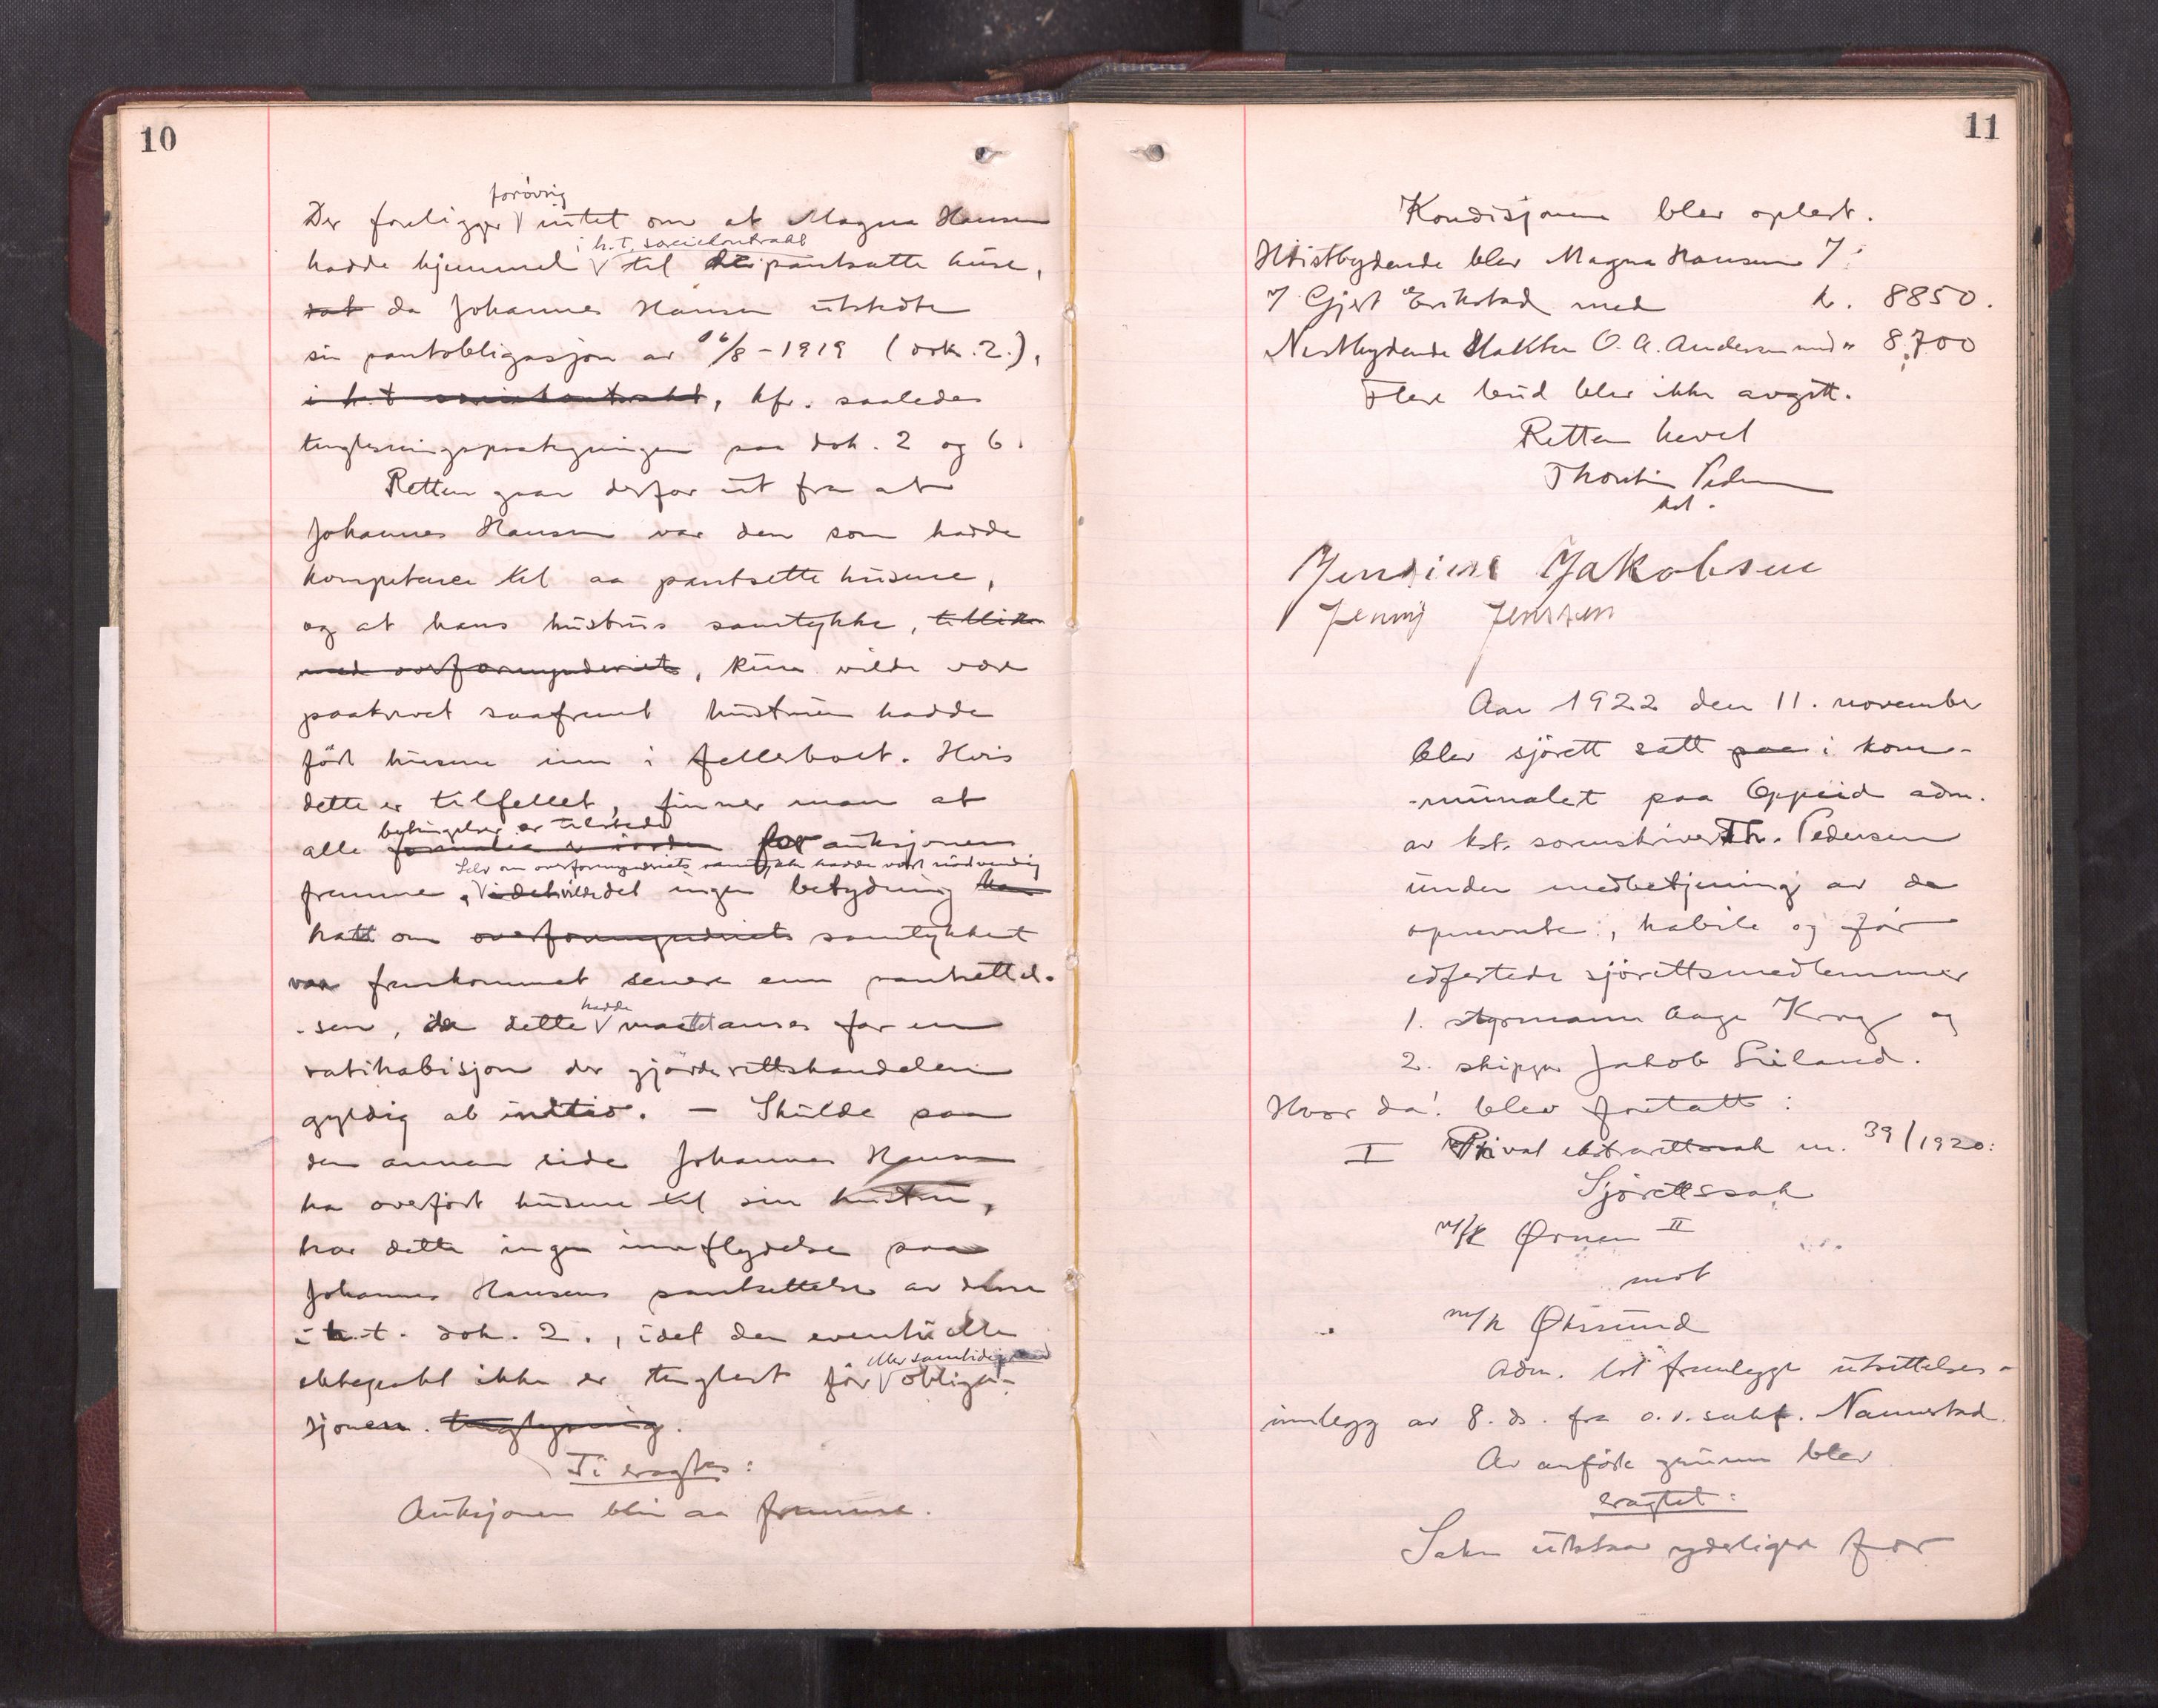 10
forøvrig
Der foreligger intet om at Magna Hansen
i h.t. særiekontrakt
hadde hjemmel til de pantsatte huse,
da Johannes Hansen utstedte
sin pantobligasjon av 16/8 - 1919 (dok. 2.),
i h.t., kfr. saaledes
tinglesningspaategningen paa dok. 2 og 6.
Retten gaar derfor ut fra at
Johannes Hansen var den som hadde
kompetance til aa pantsette husene,
og at hans hustrus samtykke, tillike
med overformynderiets, kun vilde være
paakrevet saafremt hustruen hadde
ført husene inn i fellesboet. Hvis
dette er tilfellet, finner man at
betingelser er tilstede
alle formalia er i orden for auksjonens
Selv om overformynderiets samtykke hadde vært nødvendig
fremme, vilde det ingen betydning ha
hatt om overformynderiets samtykket
var fremkommet senere enn pantsettel-
hadde
sen, da dette maattet anses for en
ratihabisjon der gjorde rettshandelen
gyldig ab initio. - Skulde paa
den annen side Johannes Hansen
ha overført husene til sin hustru,
har dette ingen innflydelse paa
Johannes Hansens pantsettelse av disse
i h.t. dok. 2., idet den eventuelle
eller samtidig med
ektepakt ikke er tinglest før obliga-
sjonen. tinglysning.
Ti eragtes:
Auksjonen blir aa fremme.
11
Kondisjonene blev oplest.
Høistbydende blev Magna Hansen v/
v/ Gjert Erikstad med k. 8850.
Nestbydende Slakter O. A. Andersen med " 8700
Flere bud blev ikke avgitt.
Retten hevet
Thorstein Pedersen
kst.
Jensine Jakobsen
Jenny Jenssen
Aar 1922 den 11. november
blev sjørett satt paa i kom-
-munalet paa Oppeid adm.
av kst. sorenskriver Th. Pedersen
under medbetjening av de
opnevnte, habile og før
edfestede sjørettsmedlemmer
1. styrmann Aage Krog og
2. skipper Jakob Leiland.
Hvor da! blev foretatt:
I Privat ekstrarettssak nr. 39/1920:
Sjørettssak
m/k Ørnen II
mot
m/k Øksund
Adm. lot fremlegge utsettelses-
innlegg av 8. ds. fra o.r.sakf. Nannestad.
Av anførte grunn blev
eragtet:
Saken utstaar yderligere for